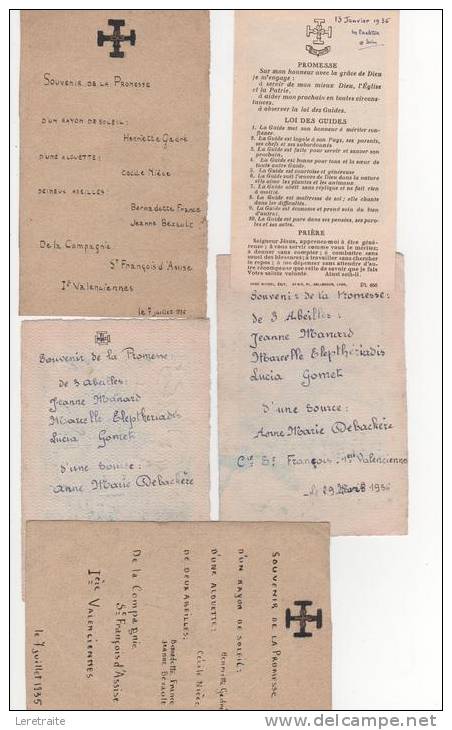 Souvenir de la Promesse
d'un rayon de soleil:
Henriette Gadré
d'une alouette:
Cécile Nièce
de deux abeilles:
Bernadette France
Jeanne Bézault
De la Compagnie
St François d'Assise
Iè Valenciennes
le 7 juillet 1935
13 Janvier 1935
PROMESSE
Sur mon honneur avec la grâce de Dieu
je m'engage :
à servir de mon mieux Dieu, l'Église
et la Patrie,
à aider mon prochain en toutes circons-
tances,
à observer la loi des Guides.
LOI DES GUIDES
1. La Guide met son honneur à mériter con-
fiance.
2. La Guide est loyale à son Pays, ses parents,
ses chefs et ses subordonnés
3. La Guide est faite pour servir et sauver son
prochain.
4. La Guide est bonne pour tous et la sœur de
toute autre Guide.
5. La Guide est courtoise et généreuse
6. La Guide voit l'œuvre de Dieu dans la nature
elle aime les plantes et les animaux
7. La Guide obéit sans réplique et ne fait rien
à moitié.
8. La Guide est maîtresse de soi ; elle chante
dans les difficultés.
9. La Guide est économe et prend soin du bien
d'autrui.
10. La Guide est pure dans ses pensées, ses paroles
et ses actes.
PRIÈRE
Seigneur Jésus, apprenez-moi à être géné-
reuse ; à vous servir comme vous le méritez ;
à donner sans compter ; à combattre sans
souci des blessures ; à travailler sans chercher
le repos ; à me dépenser sans attendre d'au-
tre récompense que celle de savoir que je fais
Votre sainte volonté. Ainsi soit-il.
Pl. 655
Souvenir de la Promesse:
de 3 Abeilles:
Jeanne Manard
Marcelle Eleptheriadis
Lucia Gomet
d'une Source:
Anne Marie Debachère
Cie St François 1ère Valencienne
Le 29 1936
Souvenir de la Promesse
de 3 abeilles:
Jeanne Manard
Marcelle Eleptheriadis
Lucia Gomet
d'une Source:
Anne Marie Debachère
Souvenir de la Promesse
d'un rayon de soleil:
Henriette Gadré
d'une alouette:
Cécile Nièce
de deux abeilles:
Bernadette France
Jeanne Bézault
De la Compagnie
St François d'Assise
Ière Valenciennes
le 7 juillet 1935
Leretraite
delcampe.net